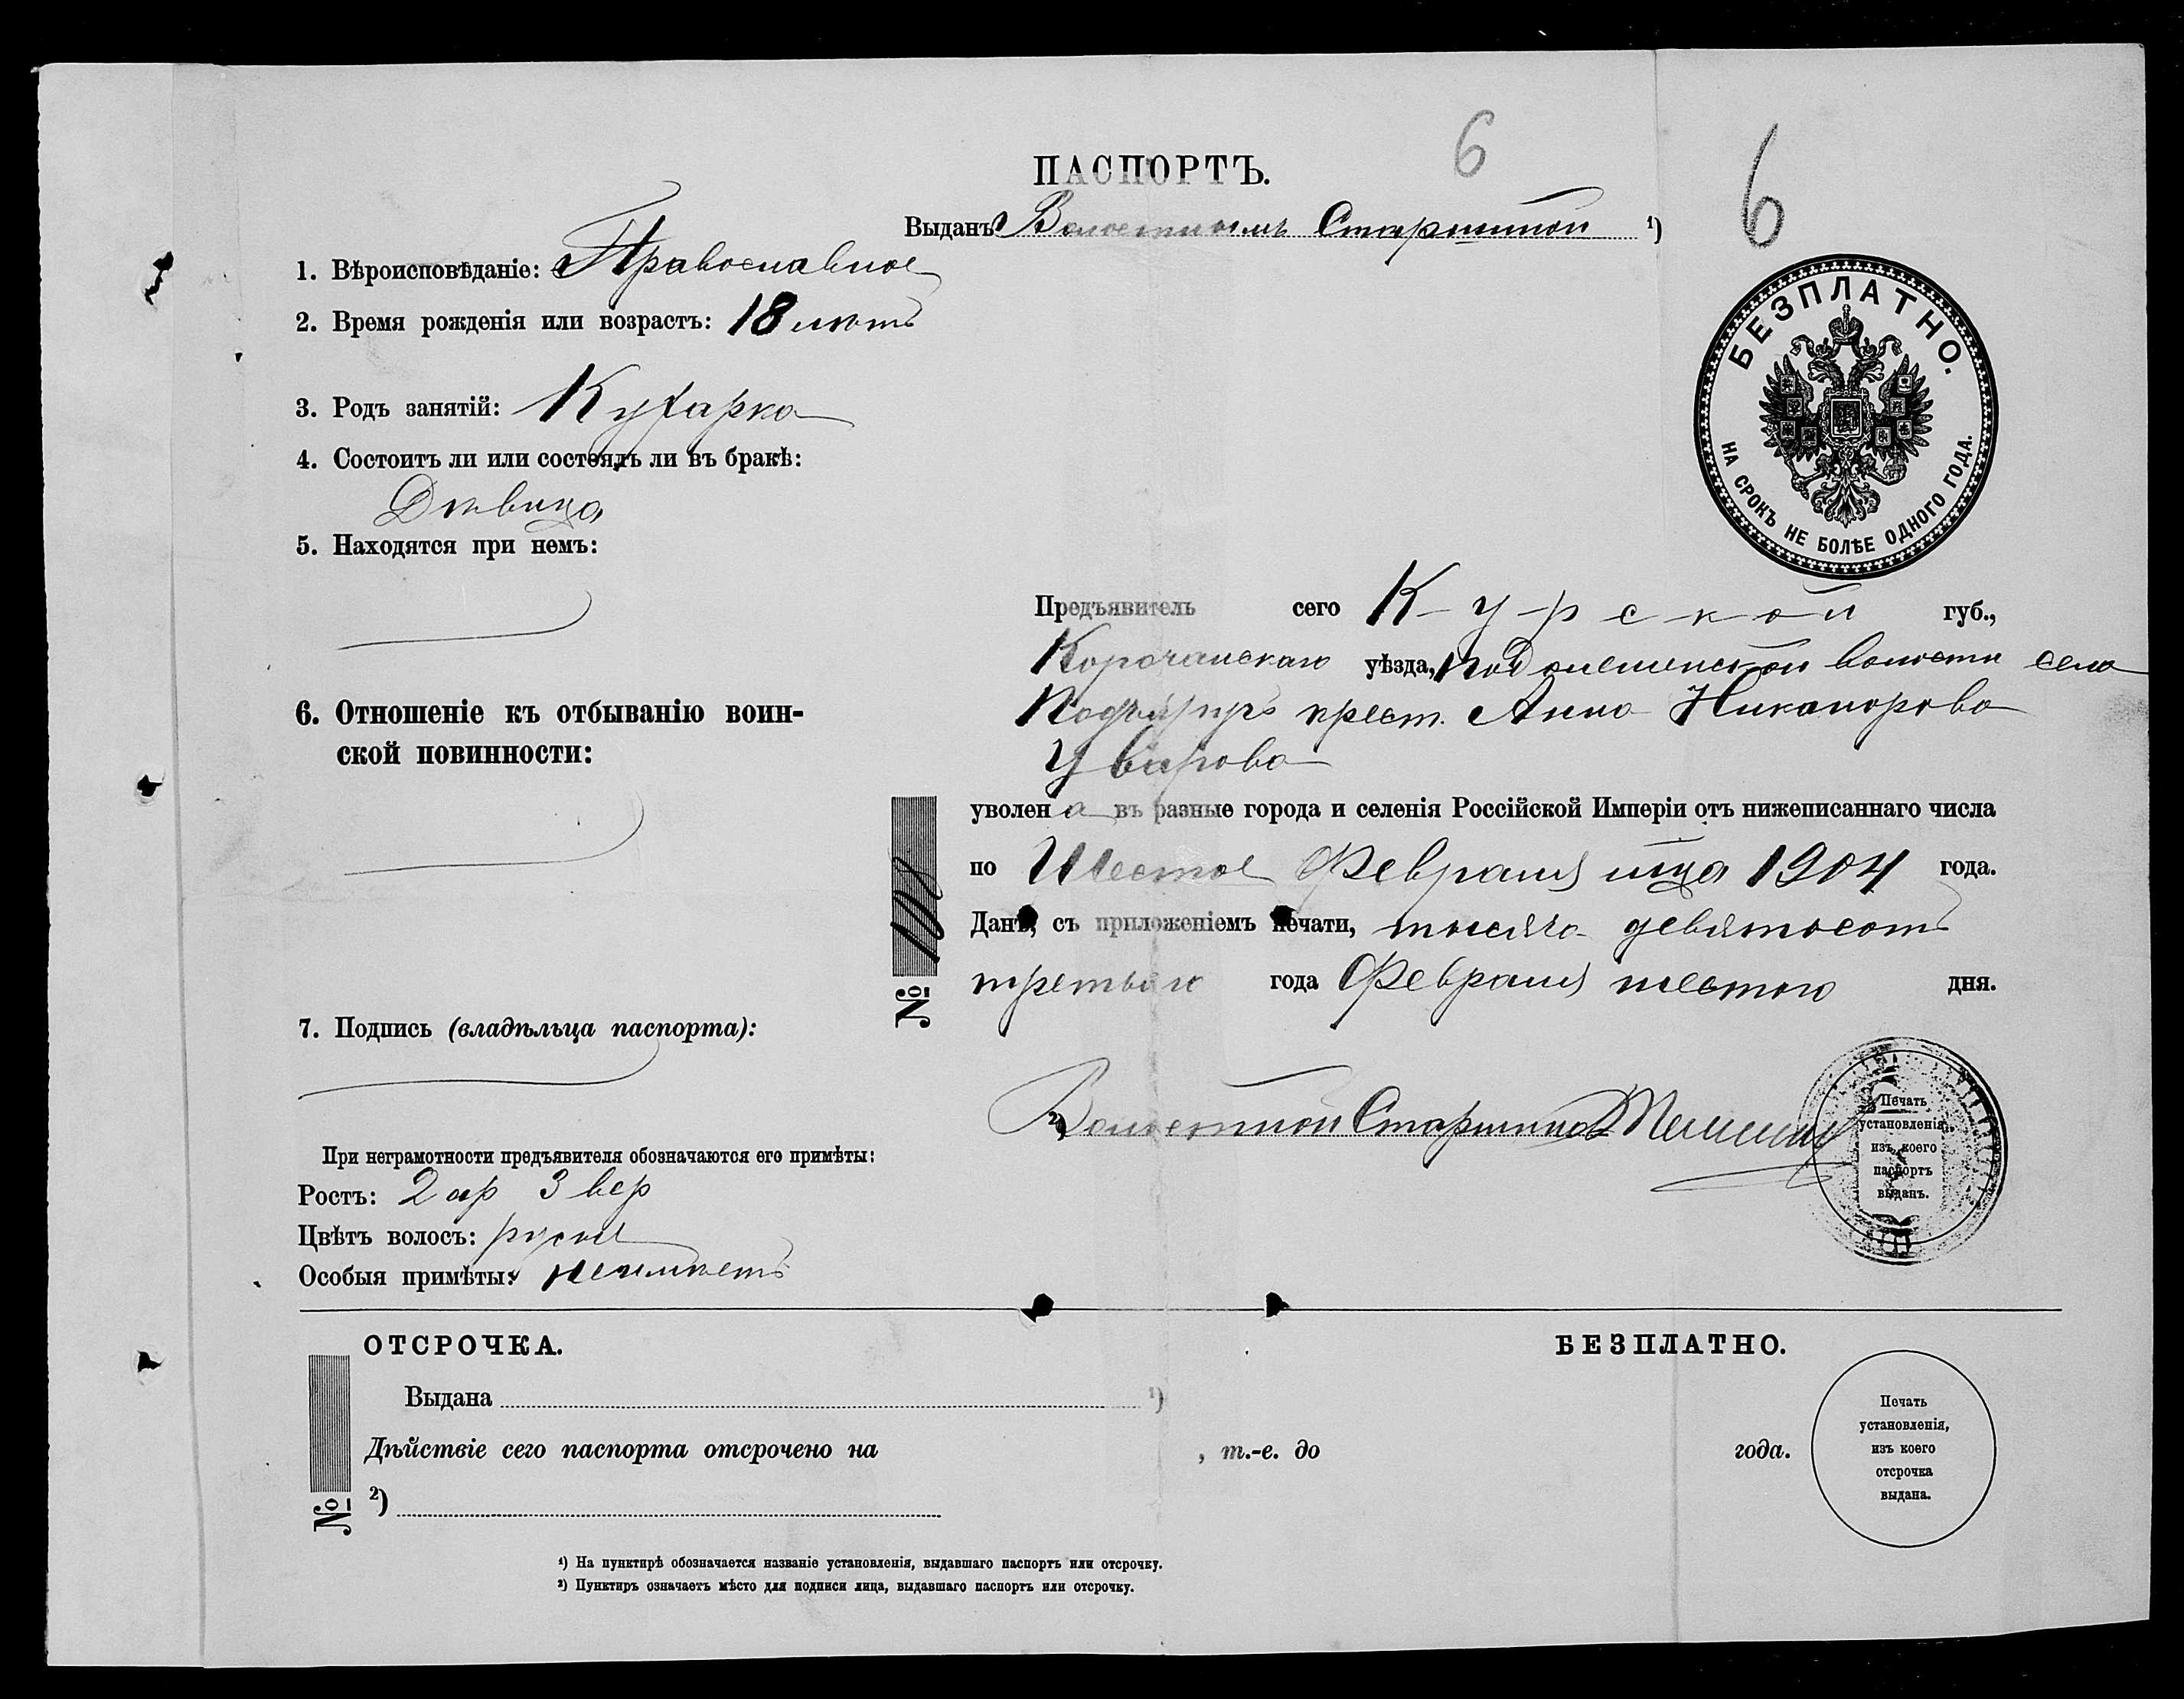 6
6
ПАСПОРТЪ.
Выданъ Волостнымъ Старшиной ¹)
1. Вѣроисповѣданіе: Православное
2. Время рожденія или возрастъ: 18 лѣтъ
3. Родъ занятій: Кухарка
4. Состоитъ ли или состоялъ ли въ бракѣ:
Дѣвица
5. Находятся при немъ:
6. Отношеніе къ отбыванію воин-
ской повинности:
7. Подпись (владѣльца паспорта):
При неграмотности предъявителя обозначаются его примѣты:
Ростъ: 2 ар 3 вер
Цвѣтъ волосъ: русые
Особыя примѣты: неимѣетъ
БЕЗПЛАТНО.
НА СРОКЪ НЕ БОЛѢЕ ОДНОГО ГОДА.
Предъявитель сего Курской губ.,
Корочанскаго уѣзда, волости села
крест. Анна Никанорова
Уварова
уволена въ разные города и селенія Россійской Имперіи отъ нижеписаннаго числа
по Шестое Февраля мца 1904 года.
Данъ, съ приложеніемъ печати, тысяча девятьсотъ
третьяго года Февраля шестого дня.
№
²) Волостной Старшина
Печать
установленія,
изъ коего
паспортъ
выданъ.
ОТСРОЧКА.
БЕЗПЛАТНО.
Выдана ¹)
Дѣйствіе сего паспорта отсрочено на , т.-е. до года.
№ ²)
Печать
установленія,
изъ коего
отсрочка
выдана.
¹) На пунктирѣ обозначается названіе установленія, выдавшаго паспортъ или отсрочку.
²) Пунктиръ означаетъ мѣсто для подписи лица, выдавшаго паспортъ или отсрочку.